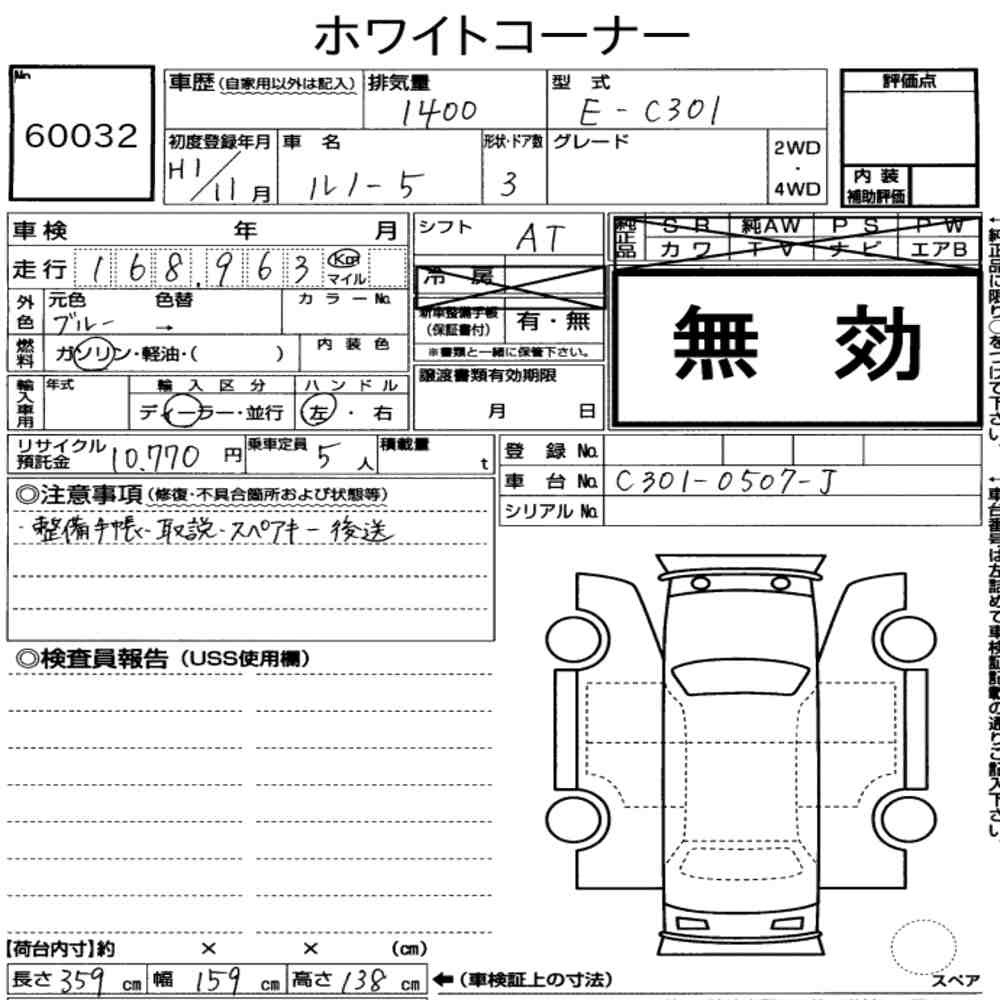 ホワイトコーナー
No.
60032
車歴(自家用以外は記入) 排気量 1400 型式 E-C301
初度登録年月 H1/11月 車名 ルノー5 形状・ドア数 3 グレード 2WD・4WD
評価点
内装補助評価
車検 年 月
走行 168,963 Km マイル
外色 元色 ブルー 色替 → カラーNo.
燃料 ガソリン・軽油・( ) 内装色
輸入車用 年式 輸入区分 ディーラー・並行 ハンドル 左・右
シフト AT
冷房
新車整備手帳(保証書付) 有・無
※書類と一緒に保管下さい。
譲渡書類有効期限
月 日
純正品 SR 純AW PS PW
カワ TV ナビ エアB
無効
リサイクル預託金 10,770円 乗車定員 5人 積載量 t
登録No.
車台No. C301-0507-J
シリアルNo.
◎注意事項(修復・不具合箇所および状態等)
・整備手帳・取説・スペアキー後送
◎検査員報告(USS使用欄)
【荷台内寸】約 × × (cm)
長さ359cm 幅159cm 高さ138cm ←(車検証上の寸法)
スペア
←純正品に限り○をつけて下さい。
←車台番号は左詰めで車検証記載の通りご記入下さい。